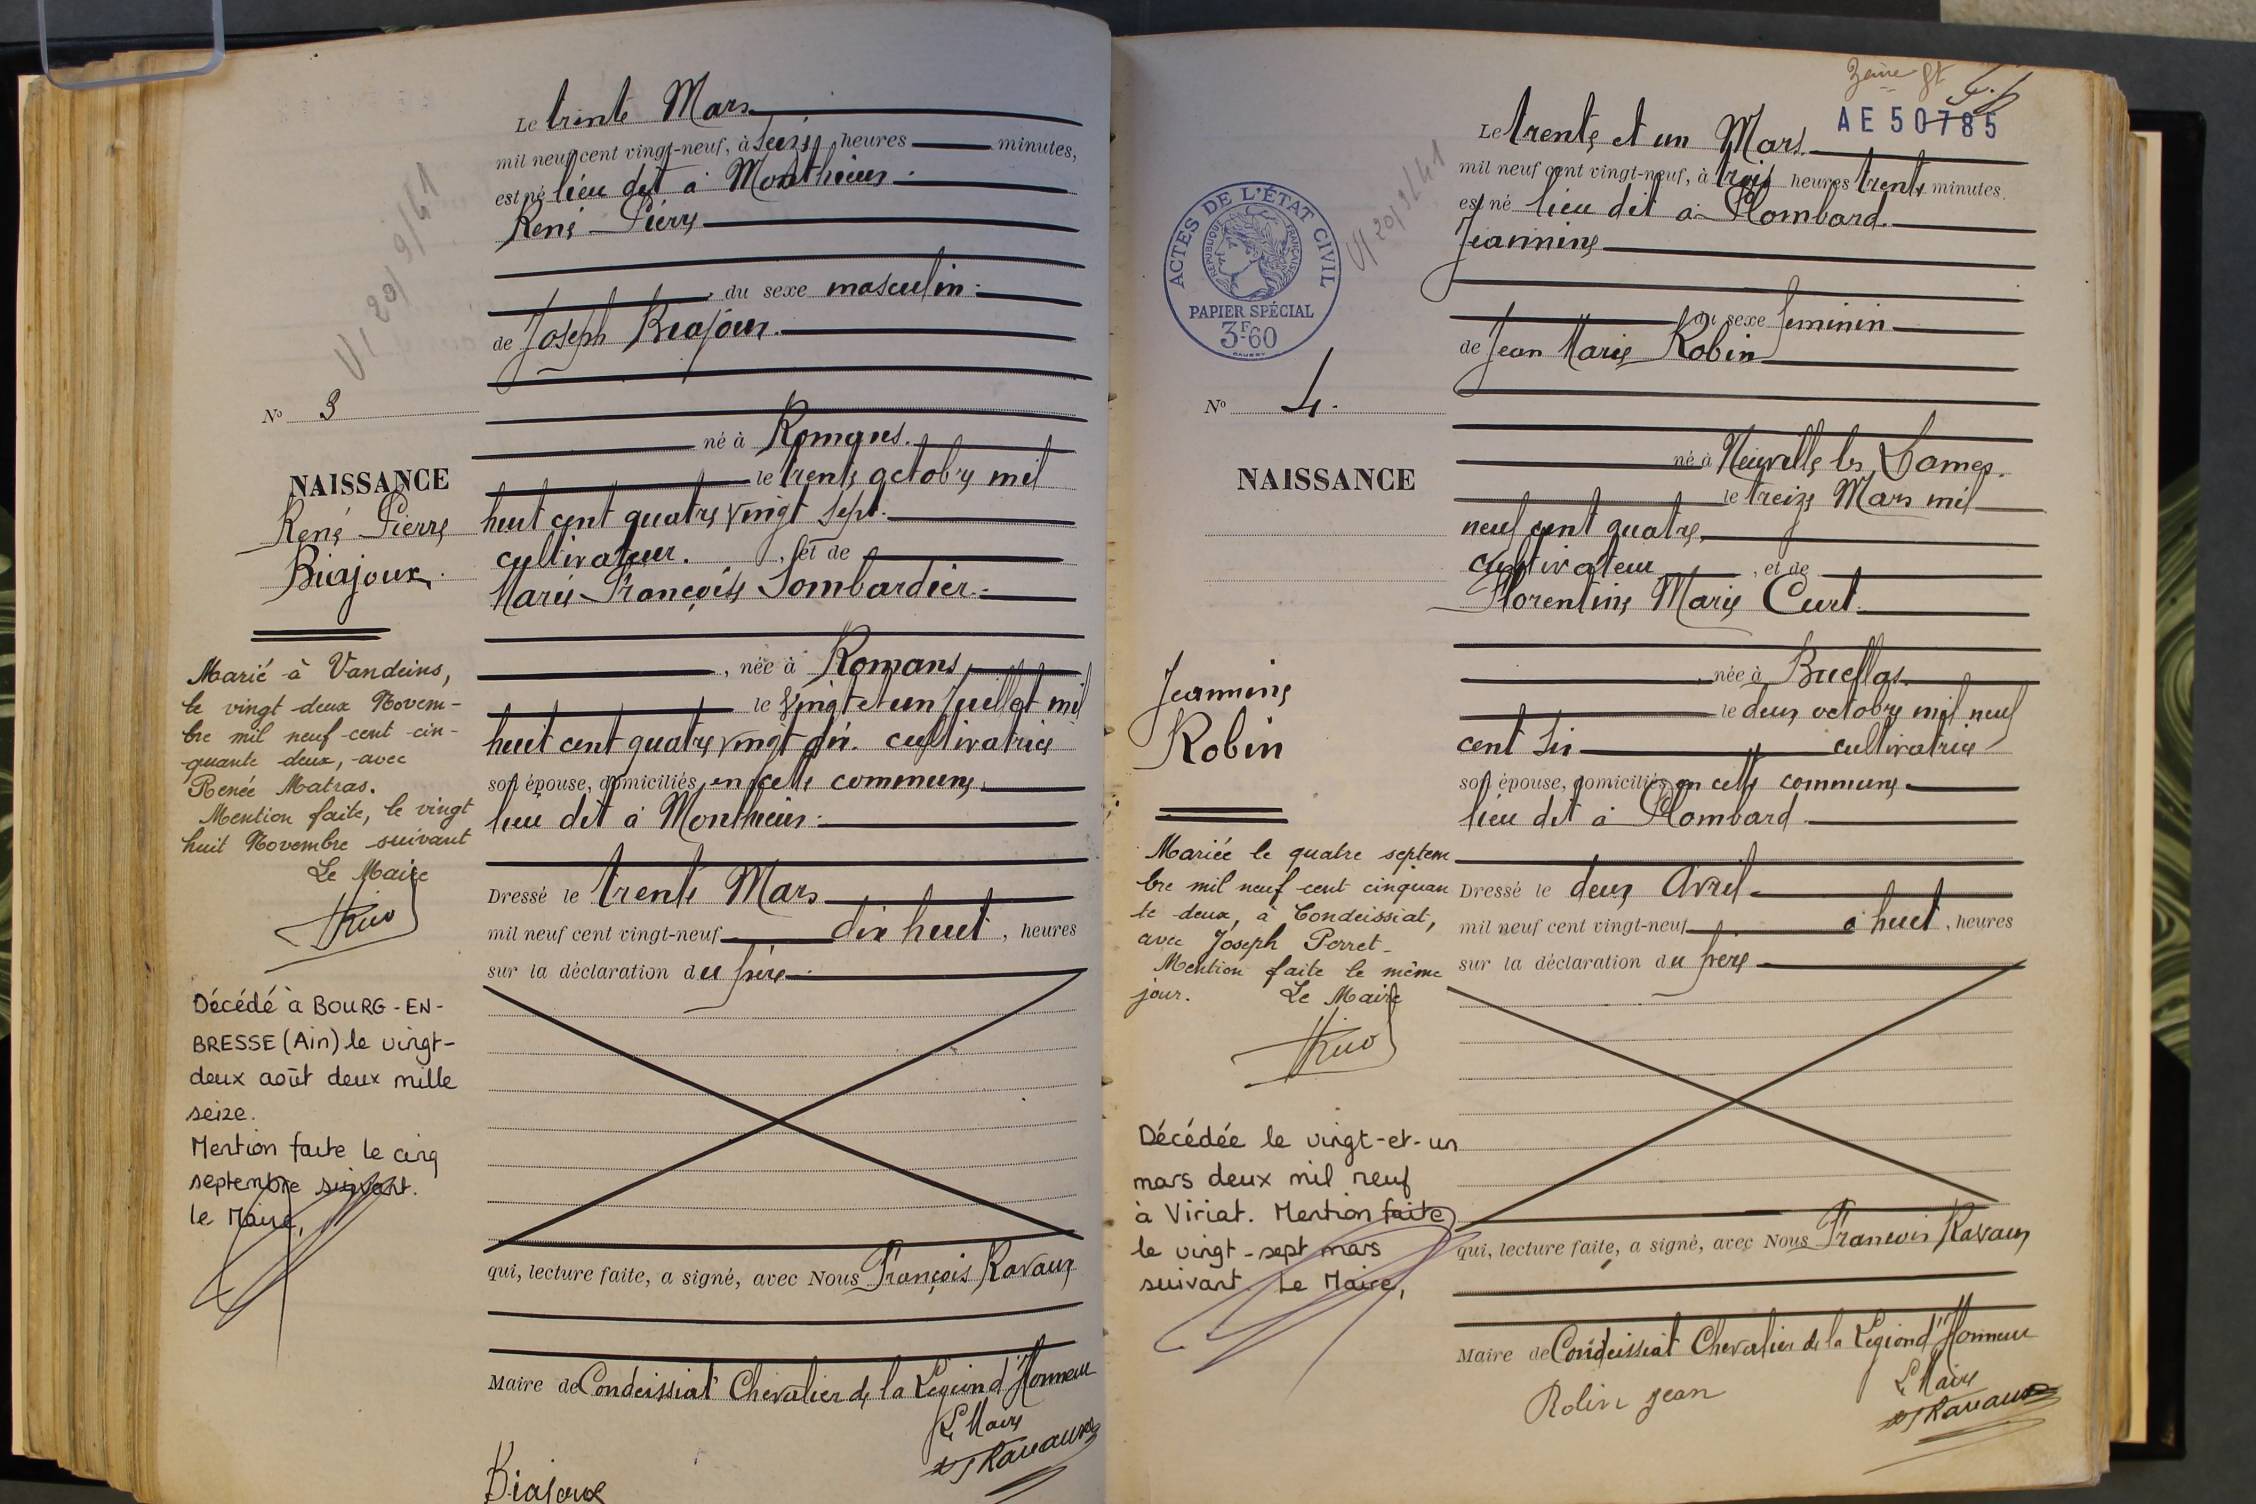 Le trente Mars
mil neuf cent vingt-neuf, à seize heures minutes,
est né lieu dit à Monthieux
René Pierre
du sexe masculin
de Joseph Biajoux
né à Romans
le trente octobre mil
huit cent quatre vingt sept
cultivateur, et de
Marie Françoise Lombardier
, née à Romans
le vingt et un Juillet mil
huit cent quatre vingt dix. cultivatrice
son épouse, domiciliés en cette commune,
lieu dit à Monthieux
Dressé le trente Mars
mil neuf cent vingt-neuf dix huit, heures
sur la déclaration du père
qui, lecture faite, a signé, avec Nous François Ravaux
Maire de Condeissiat Chevalier de la Légion d'Honneur
Le Maire
Ravaux
Biajoux
N° 3
NAISSANCE
René Pierre
Biajoux.
Marié à Vandeins,
le vingt deux Novem-
bre mil neuf cent cin-
quante deux, avec
Renée Matras.
Mention faite, le vingt
huit Novembre suivant
Le Maire
Décédé à BOURG-EN-
BRESSE (Ain) le vingt-
deux août deux mille
seize.
Mention faite le cinq
septembre suivant.
le Maire,
AE 50785
Le trente et un Mars
mil neuf cent vingt-neuf, à trois heures trente minutes.
est né lieu dit à Plombard.
Jeannine
du sexe féminin
de Jean Marie Robin
né à Neuville les Dames.
le treize Mars mil
neuf cent quatre,
cultivateur, et de
Florentine Marie Curt
, née à Buellas
le deux octobre mil neuf
cent six cultivatrice
son épouse, domiciliés en cette commune
lieu dit à Plombard
Dressé le deux Avril
mil neuf cent vingt-neuf à huit, heures
sur la déclaration du père
qui, lecture faite, a signé, avec Nous François Ravaux
Maire de Condeissiat Chevalier de la Légion d'Honneur
Le Maire
Robin Jean
Ravaux
ACTES DE L'ÉTAT CIVIL
RÉPUBLIQUE FRANÇAISE
PAPIER SPÉCIAL
3F60
N° 4.
NAISSANCE
Jeannine
Robin
Mariée le quatre septem
bre mil neuf cent cinquan
te deux, à Condeissiat,
avec Joseph Perret.
Mention faite le même
jour. Le Maire
Décédée le vingt-et-un
mars deux mil neuf
à Viriat. Mention faite
le vingt-sept mars
suivant. Le Maire,